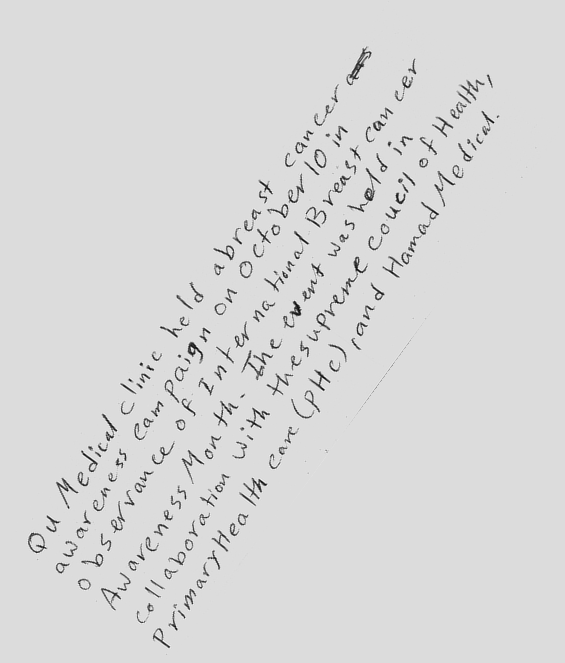 QU Medical clinic held abreast cancer
awareness campaign on October 10 in
observance of International Breast cancer
Awareness Month. The event was held in
collaboration with thesupreme coucil of Health,
PrimaryHealth care (PHC), and Hamad Medical.